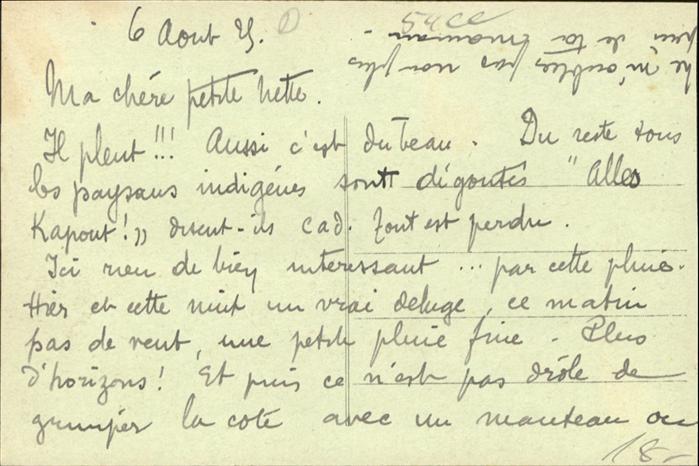 6 Aout 25.
Ma chére petite Nette.
Il pleut!!! Aussi c'est du beau. Du reste tous
les paysans indigénes sont dégoutés "Alles
Kapout!" disent-ils cad. tout est perdu.
Ici rien de bien interessant ... par cette pluie.
Hier et cette nuit un vrai deluge, ce matin
pas de vent, une petite pluie fine. Plus
d'horizons! Et puis ce n'est pas drôle de
grimper la cote avec un manteau ou
ne m'oublies pas non plus
de ta maman -
18-